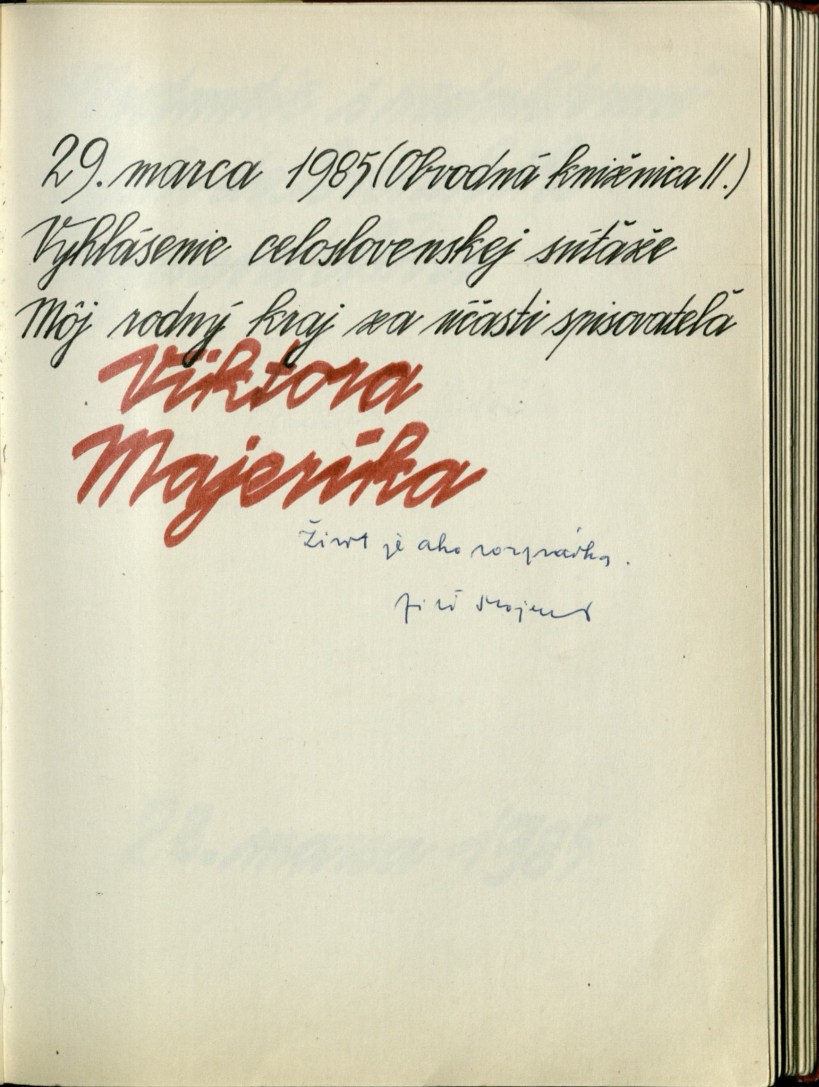 29. marca 1985 (Obvodná knižnica II.)
Vyhlásenie celoslovenskej súťaže
Môj rodný kraj za účasti spisovateľa
Viktora
Majeríka
Život je ako rozprávka.